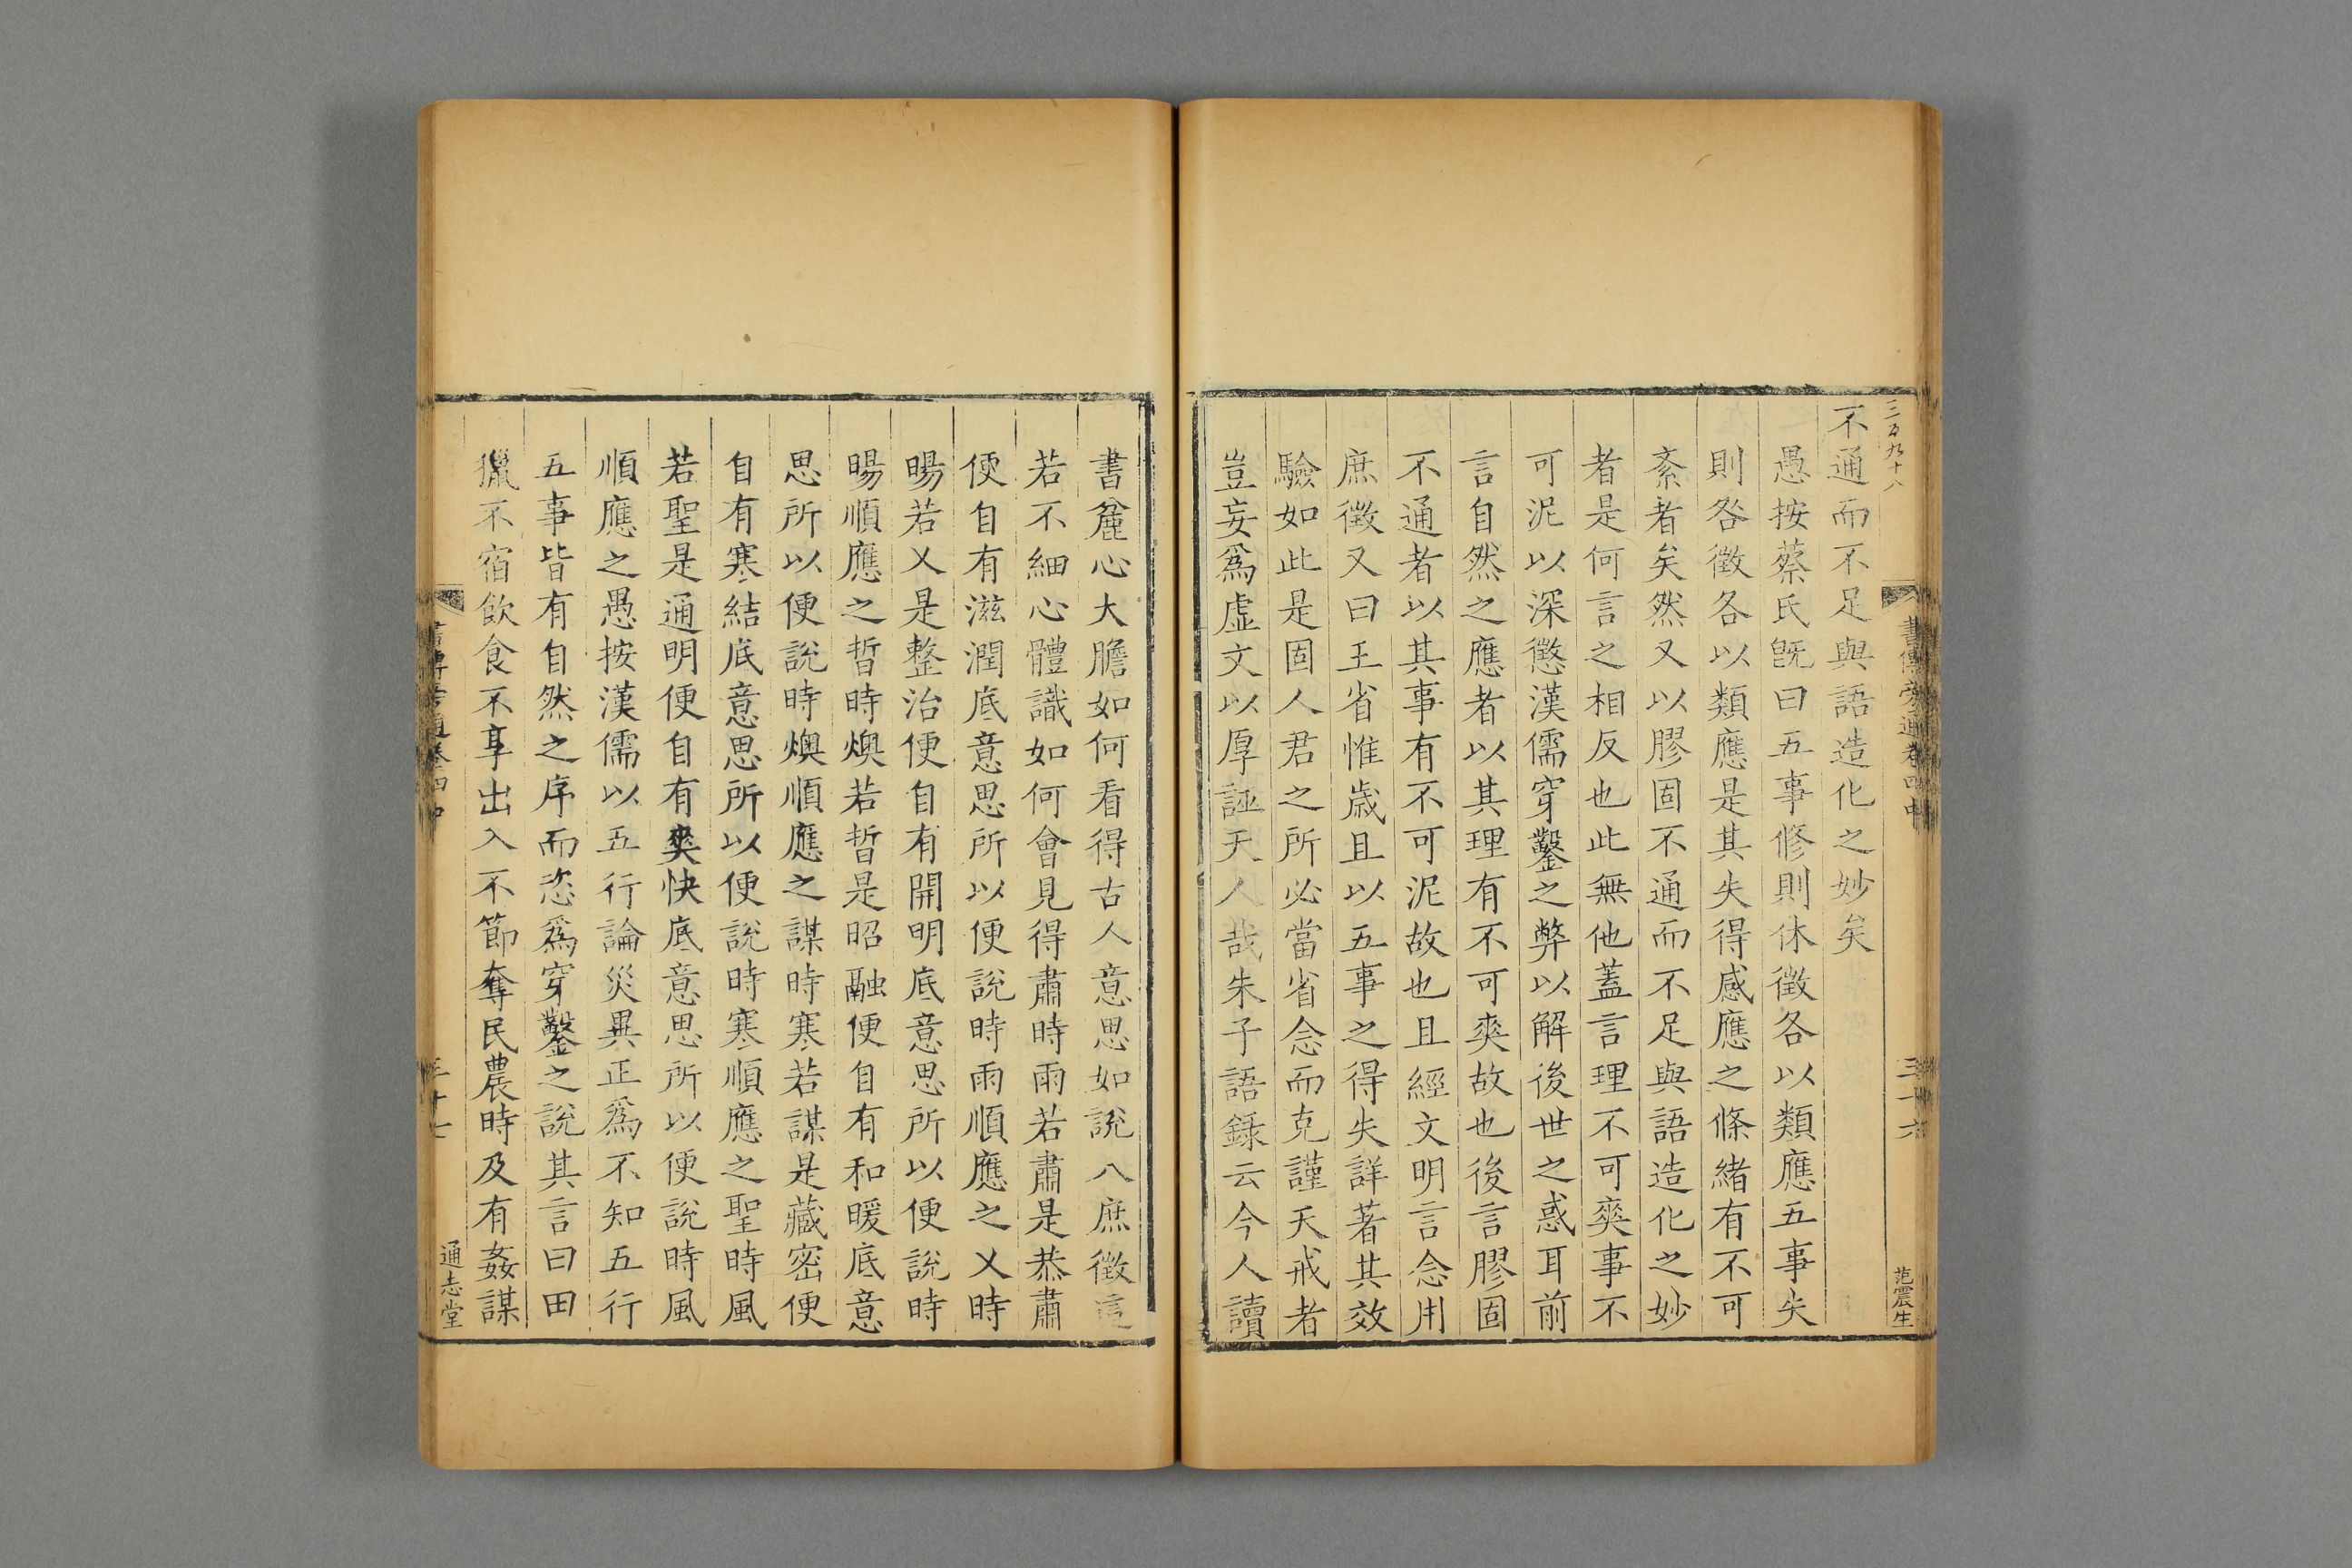 三百九十八
書傳旁通卷四中
三十六
范震生
不通而不足與語造化之妙矣
愚按蔡氏旣曰五事修則休徵各以類應五事失
則咎徵各以類應是其失得感應之條緒有不可
紊者矣然又以膠固不通而不足與語造化之妙
者是何言之相反也此無他蓋言理不可爽事不
可泥以深懲漢儒穿鑿之弊以解後世之惑耳前
言自然之應者以其理有不可爽故也後言膠固
不通者以其事有不可泥故也且經文明言念用
庶徵又曰王省惟歲且以五事之得失詳著其效
驗如此是固人君之所必當省念而克謹天戒者
豈妄爲虛文以厚誣天人哉朱子語錄云今人讀
書麄心大膽如何看得古人意思如說八庶徵這
若不細心體識如何會見得肅時雨若肅是恭肅
便自有滋潤底意思所以便說時雨順應之乂時
暘若乂是整治便自有開明底意思所以便說時
暘順應之晢時燠若晢是昭融便自有和暖底意
思所以便說時燠順應之謀時寒若謀是藏密便
自有寒結底意思所以便說時寒順應之聖時風
若聖是通明便自有爽快底意思所以便說時風
順應之愚按漢儒以五行論災異正爲不知五行
五事皆有自然之序而恣爲穿鑿之說其言曰田
獵不宿飲食不享出入不節奪民農時及有姦謀
書傳旁通卷四中
三十七
通志堂